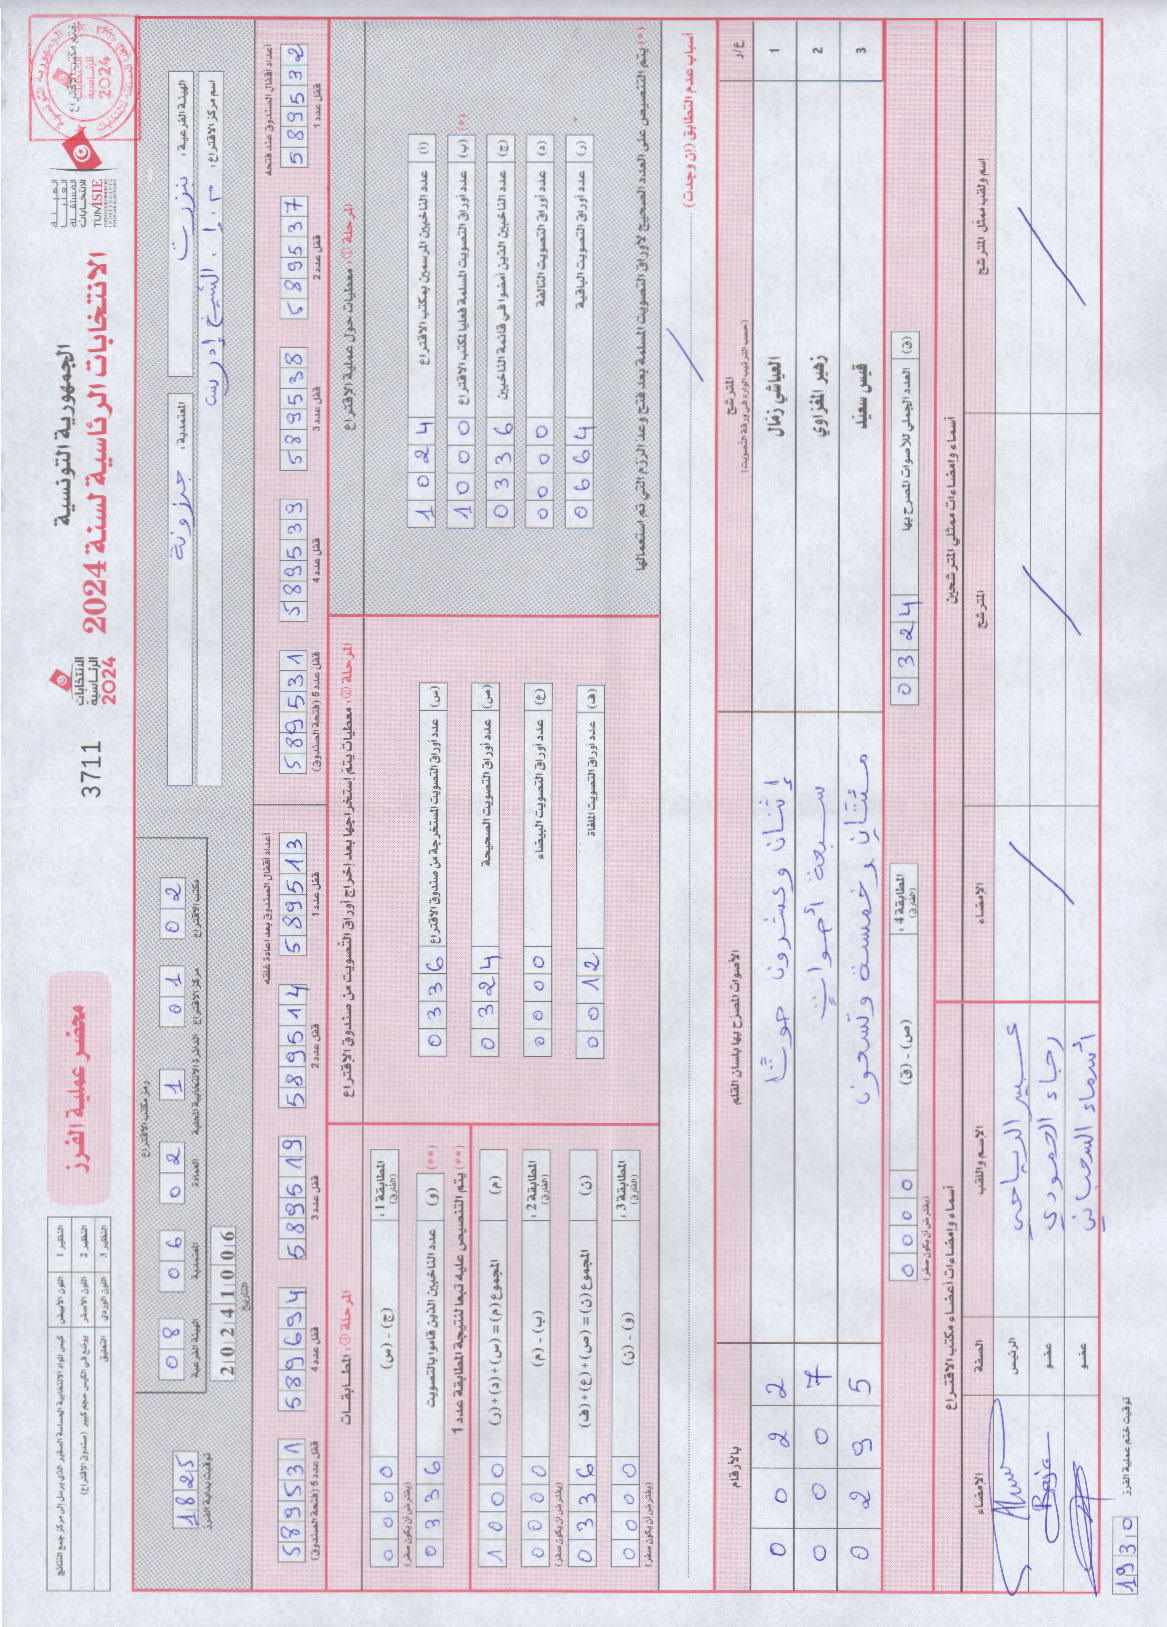 الجمهورية التونسية
الانتخابات الرئاسية لسنة 2024
الهيئة
العليا
المستقلة
للانتخابات
TUNISIE
الانتخابات
الرئاسية
2024
3711
محضر عملية الفرز
النظير 1 اللون الأبيض
النظير 2 اللون الأصفر
النظير 3 اللون الوردي التعليق
الهيئة الفرعية: بنزرت
المعتمدية: جرزونة
اسم مركز الاقتراع:
رمز مكتب الاقتراع
08 06 02 1 01 02
الهيئة الفرعية المعتمدية العمادة الدائرة الانتخابية المحلية مركز الاقتراع مكتب الاقتراع
20241006
التاريخ
1825
توقيت بداية الفرز
أعداد أقفال الصندوق عند فتحه
589532 قفل عدد 1
589537 قفل عدد 2
589538 قفل عدد 3
589539 قفل عدد 4
589531 قفل عدد 5 (فتحة الصندوق)
أعداد أقفال الصندوق بعد إعادة غلقه
589513 قفل عدد 1
589514 قفل عدد 2
589519 قفل عدد 3
589694 قفل عدد 4
589531 قفل عدد 5 (فتحة الصندوق)
المرحلة 1: معطيات حول عملية الاقتراع
(أ) عدد الناخبين المرسمين بمكتب الاقتراع 1024
(ب) عدد أوراق التصويت المسلمة فعليا لمكتب الاقتراع 1000 (*)
(ج) عدد الناخبين الذين أمضوا في قائمة الناخبين 0336
(د) عدد أوراق التصويت التالفة 0000
(ر) عدد أوراق التصويت الباقية 0664
(*) يتم التنصيص على العدد الصحيح لأوراق التصويت المسلمة بعد فتح وعد الرزم التي تم استعمالها
المرحلة 2: معطيات يتم إستخراجها بعد إخراج أوراق التصويت من صندوق الاقتراع
(س) عدد أوراق التصويت المستخرجة من صندوق الاقتراع 0336
(ص) عدد أوراق التصويت الصحيحة 0324
(ع) عدد أوراق التصويت البيضاء 0000
(ف) عدد أوراق التصويت الملغاة 0012
المرحلة 3: المطابقات
المطابقة 1: (الفارق) (ج) - (س) 0000 (يفترض أن يكون صفر)
(**) (و) عدد الناخبين الذين قاموا بالتصويت 0336
(**) يتم التنصيص عليه تبعا لنتيجة المطابقة عدد 1
(م) المجموع (م) = (س) + (د) + (ر) 1000
المطابقة 2: (الفارق) (ب) - (م) 0000 (يفترض أن يكون صفر)
(ن) المجموع (ن) = (ص) + (ع) + (ف) 0336
المطابقة 3: (الفارق) (و) - (ن) 0000 (يفترض أن يكون صفر)
أسباب عدم التطابق (إن وجدت)
ع/ر المترشح الأصوات المصرح بها بلسان القلم بالأرقام
(حسب الترتيب الوارد في ورقة التصويت)
1 العياشي زمال إثنان وعشرون صوتا 0022
2 زهير المغزاوي سبعة أصوات 0007
3 قيس سعيد مئتان وخمسة وتسعون 0295
(ق) العدد الجملي للأصوات المصرح بها 0324
المطابقة 4: (الفارق) (ص) - (ق) 0000 (يفترض أن يكون صفر)
أسماء وإمضاءات ممثلي المترشحين
اسم ولقب ممثل المترشح المترشح الإمضاء
أسماء وإمضاءات أعضاء مكتب الاقتراع
الإسم واللقب الصفة الإمضاء
عبير الرياحي الرئيس
رجاء الحمودي عضو Raja
أسماء السحباني عضو
1930 توقيت ختم عملية الفرز